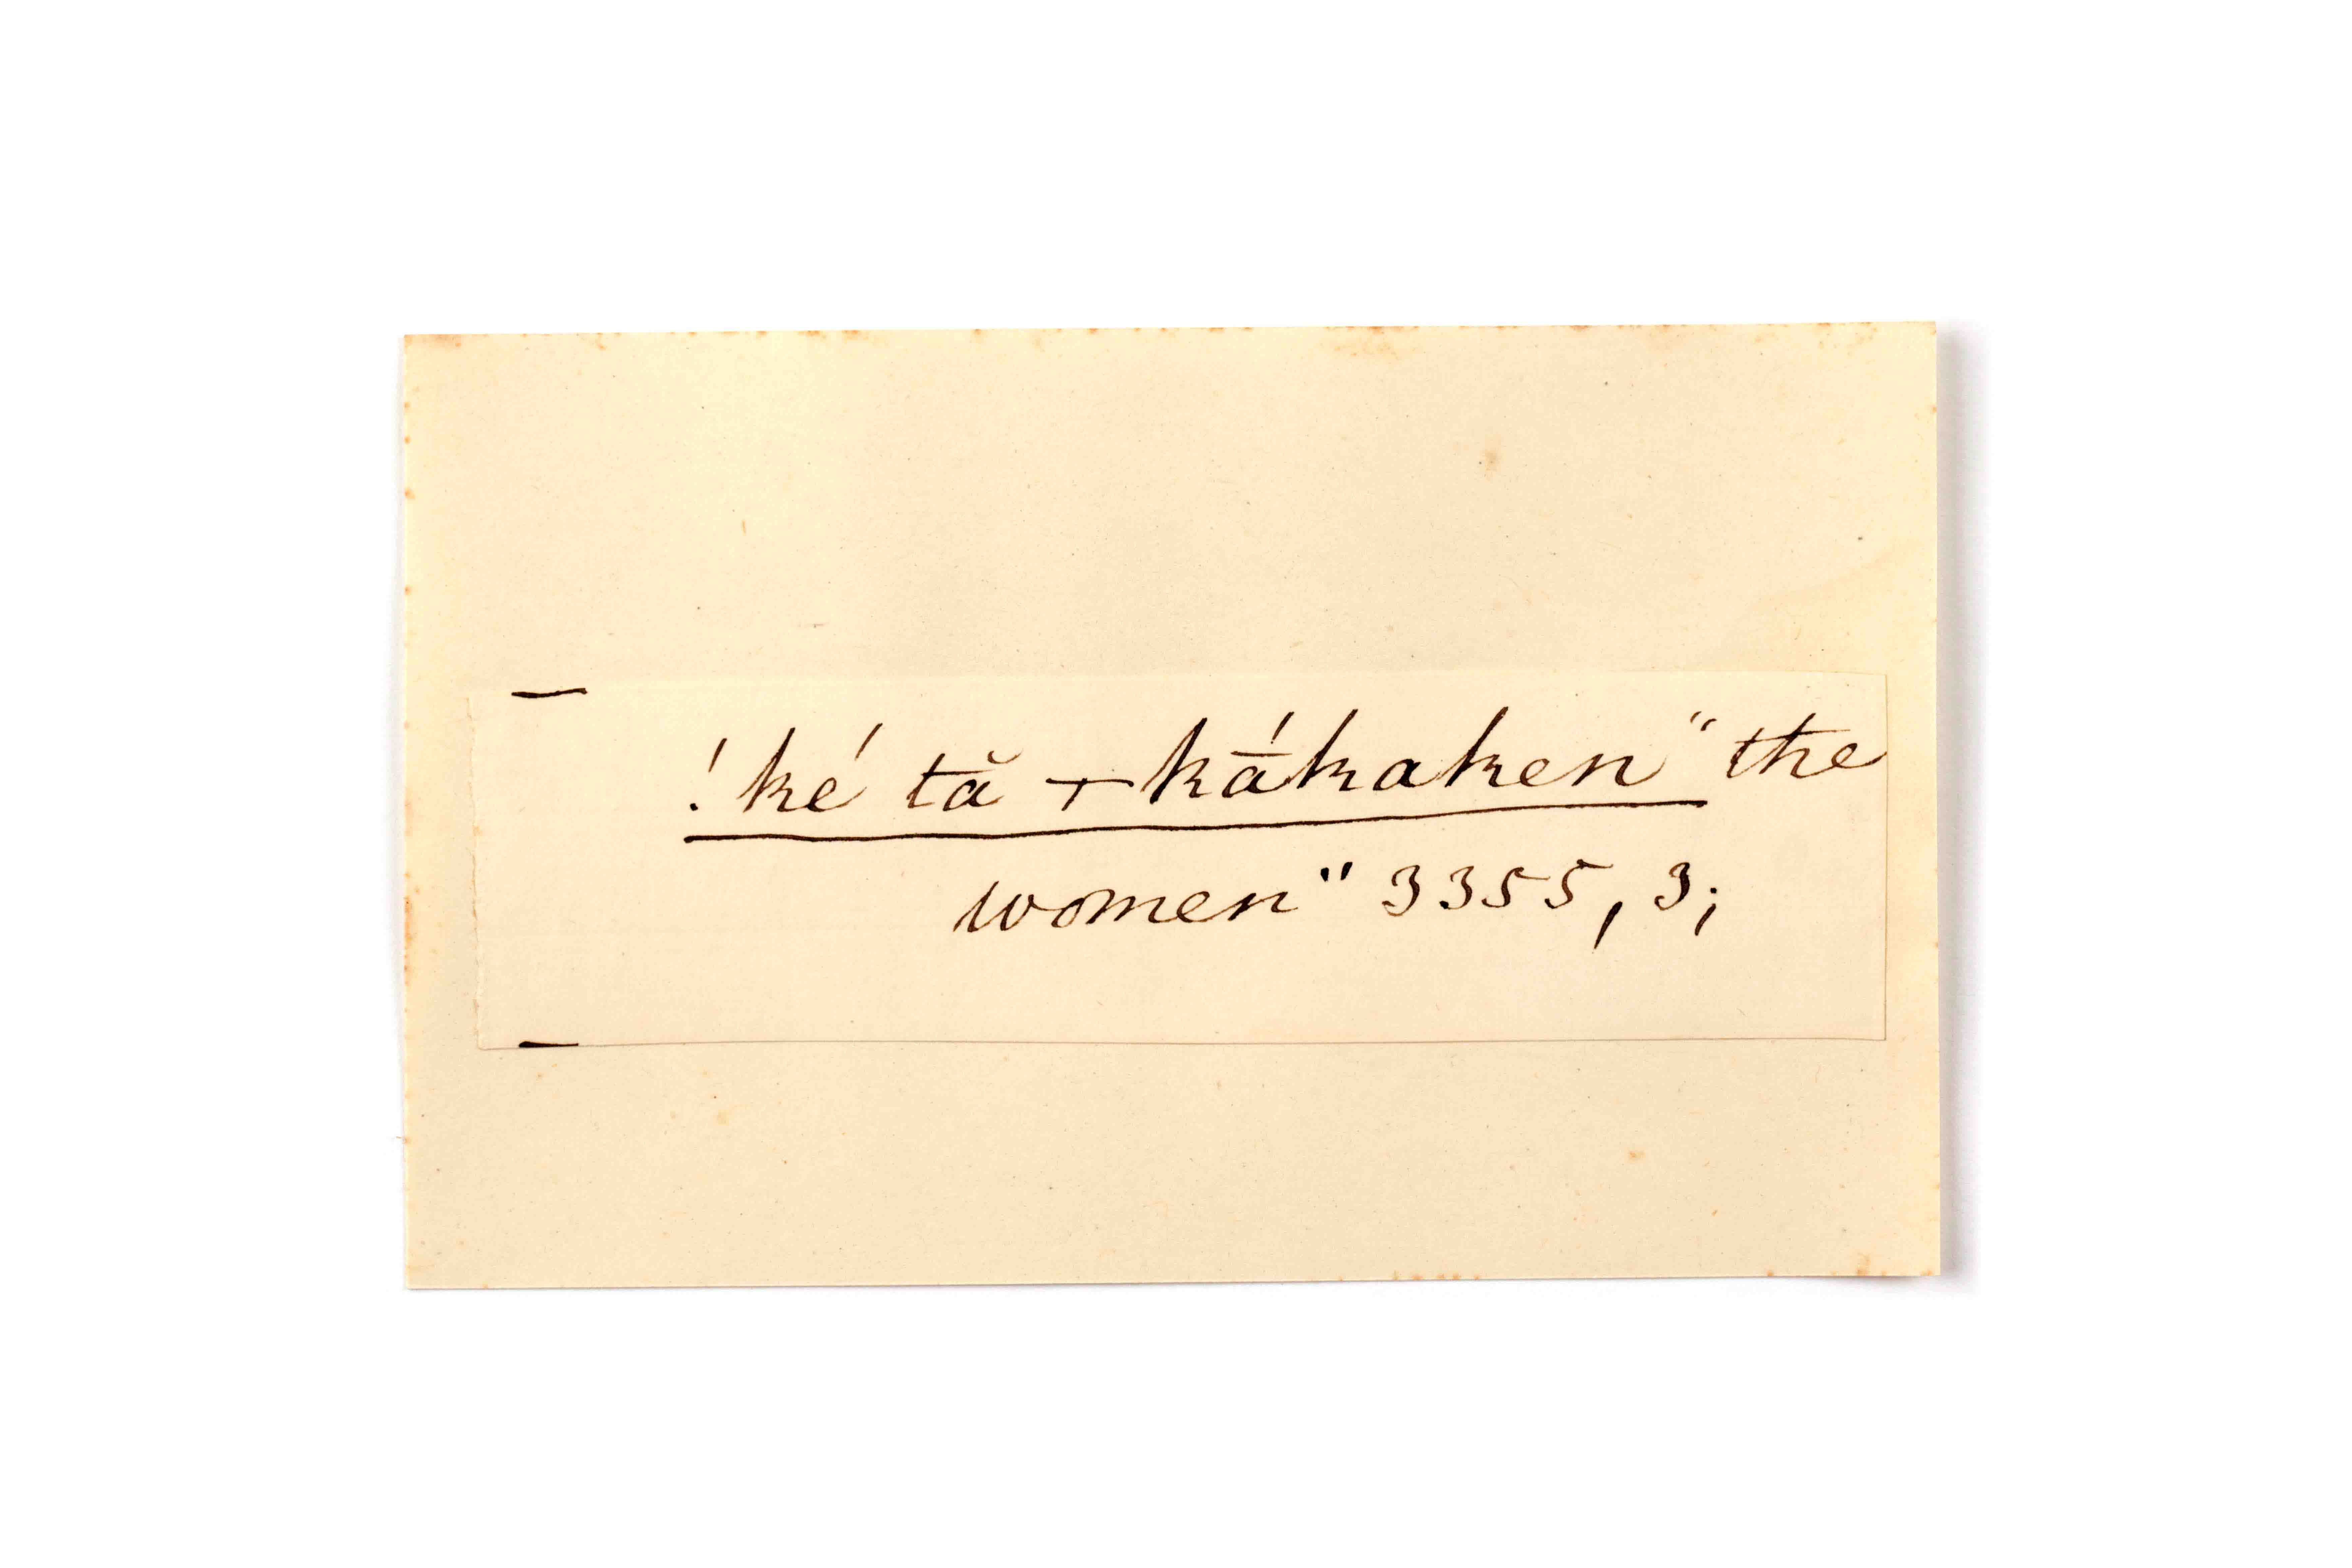 !ké tă + kā́kaken "the
women" 3355, 3;